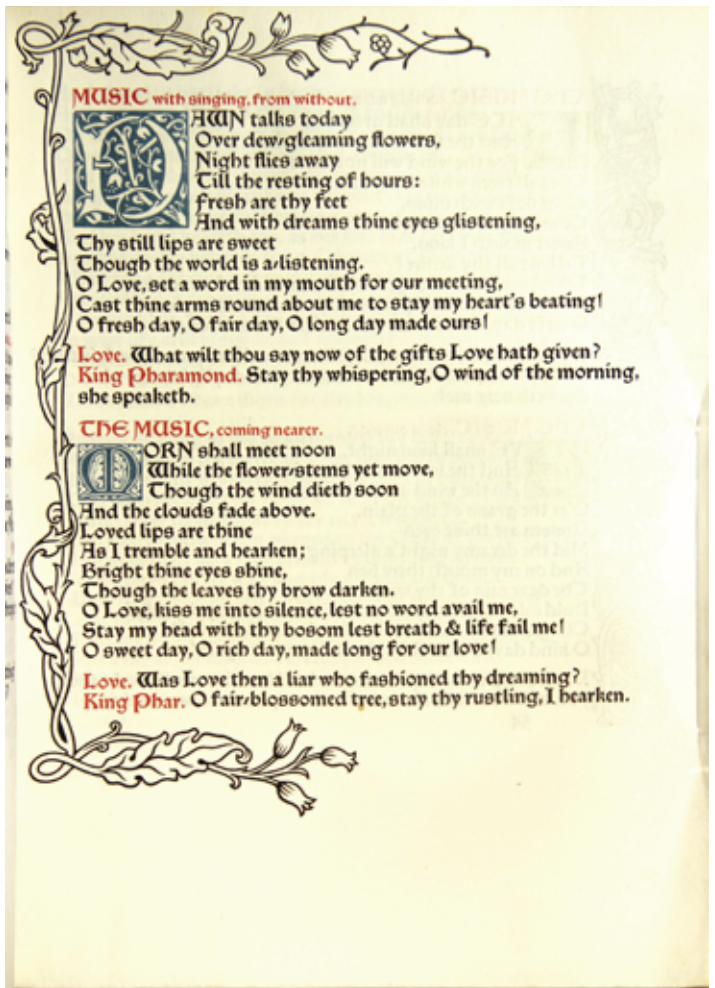 MUSIC with singing, from without.
DAWN talks today
Over dew-gleaming flowers,
Night flies away
Till the resting of hours:
Fresh are thy feet
And with dreams thine eyes glistening,
Thy still lips are sweet
Though the world is a-listening.
O Love, set a word in my mouth for our meeting,
Cast thine arms round about me to stay my heart's beating!
O fresh day, O fair day, O long day made ours!
Love. What wilt thou say now of the gifts Love hath given?
King Pharamond. Stay thy whispering, O wind of the morning,
she speaketh.
THE MUSIC, coming nearer.
MORN shall meet noon
While the flower-stems yet move,
Though the wind dieth soon
And the clouds fade above.
Loved lips are thine
As I tremble and hearken;
Bright thine eyes shine,
Though the leaves thy brow darken.
O Love, kiss me into silence, lest no word avail me,
Stay my head with thy bosom lest breath & life fail me!
O sweet day, O rich day, made long for our love!
Love. Was Love then a liar who fashioned thy dreaming?
King Phar. O fair-blossomed tree, stay thy rustling, I hearken.